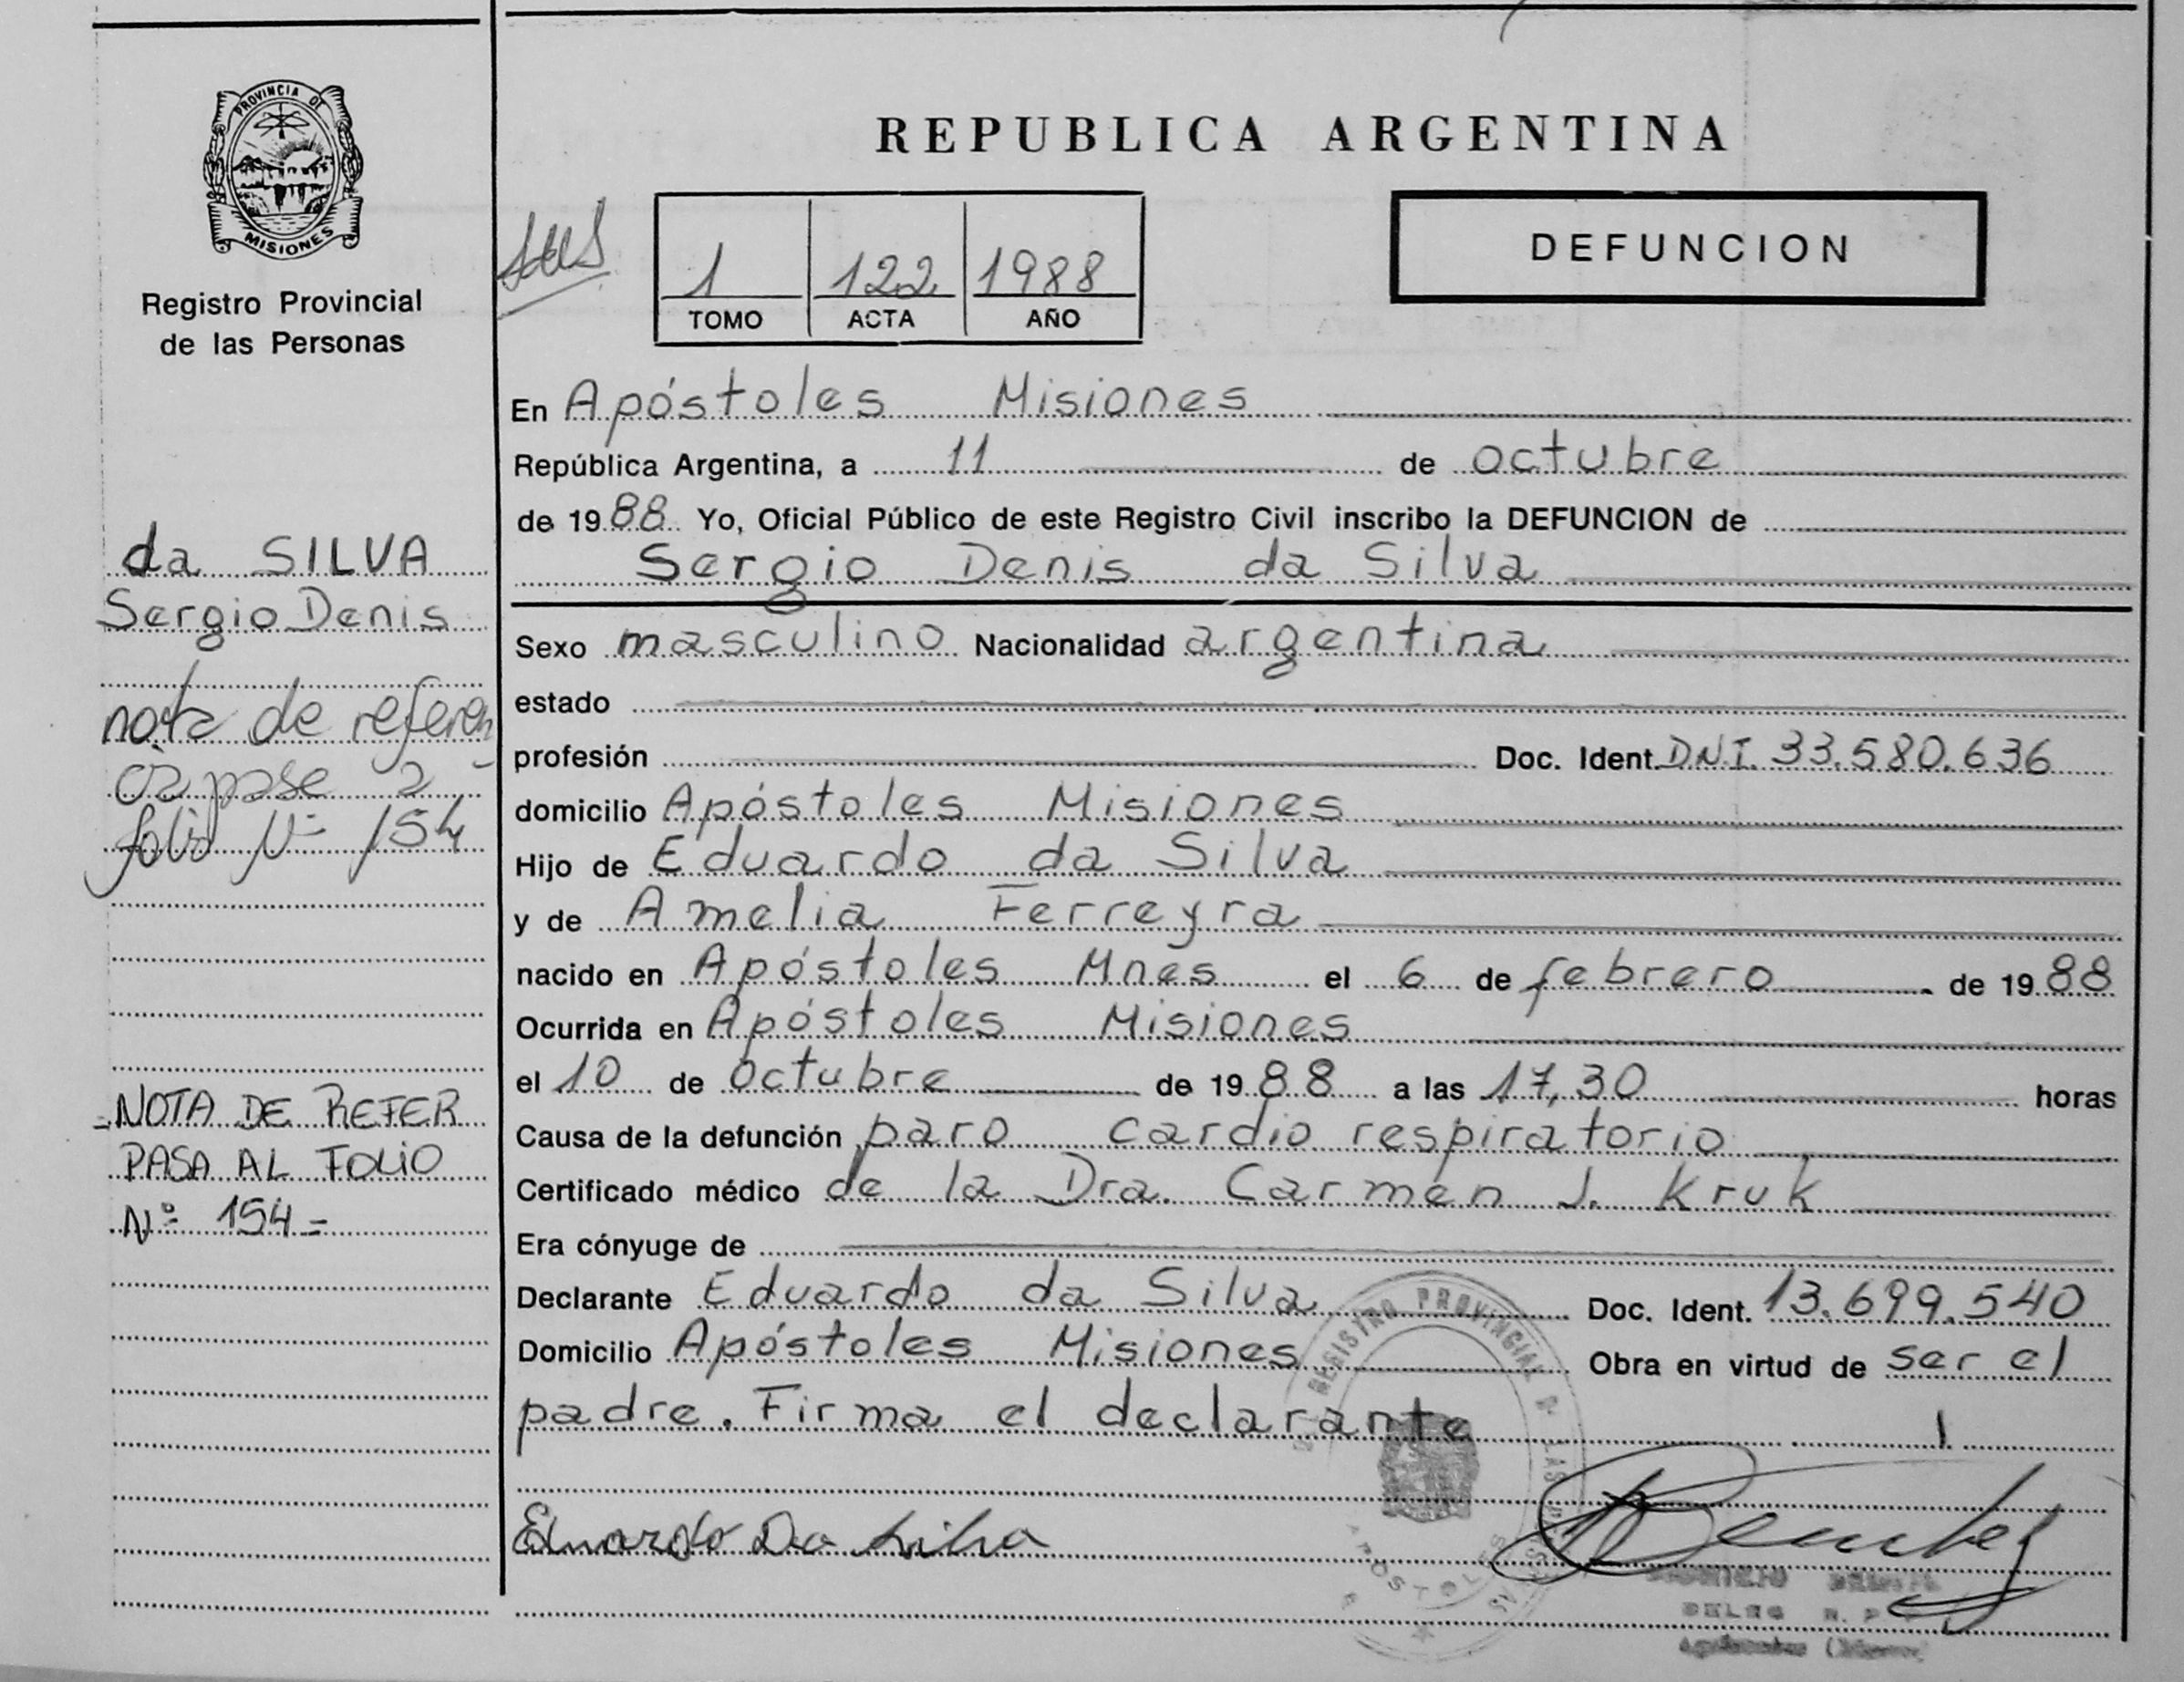 PROVINCIA DE
MISIONES
Registro Provincial
de las Personas
da SILVA
Sergio Denis
nota de referen
cia pase a
folio Nº 154
NOTA DE REFER
PASA AL FOLIO
Nº 154 =
REPUBLICA ARGENTINA
1 122 1988
TOMO ACTA AÑO
DEFUNCION
En Apóstoles Misiones
República Argentina, a 11 de octubre
de 1988 Yo, Oficial Público de este Registro Civil inscribo la DEFUNCION de
Sergio Denis da Silva
Sexo masculino Nacionalidad argentina
estado
profesión Doc. Ident. DNI. 33.580.636
domicilio Apóstoles Misiones
Hijo de Eduardo da Silva
y de Amelia Ferreyra
nacido en Apóstoles Mnes el 6 de febrero de 1988
Ocurrida en Apóstoles Misiones
el 10 de octubre de 1988 a las 17,30 horas
Causa de la defunción paro cardio respiratorio
Certificado médico de la Dra. Carmen J. Kruk
Era cónyuge de
Declarante Eduardo da Silva Doc. Ident. 13.699.540
Domicilio Apóstoles Misiones Obra en virtud de ser el
padre. Firma el declarante
Eduardo Da Silva
REGISTRO PROVINCIAL D LAS
APOSTOLES